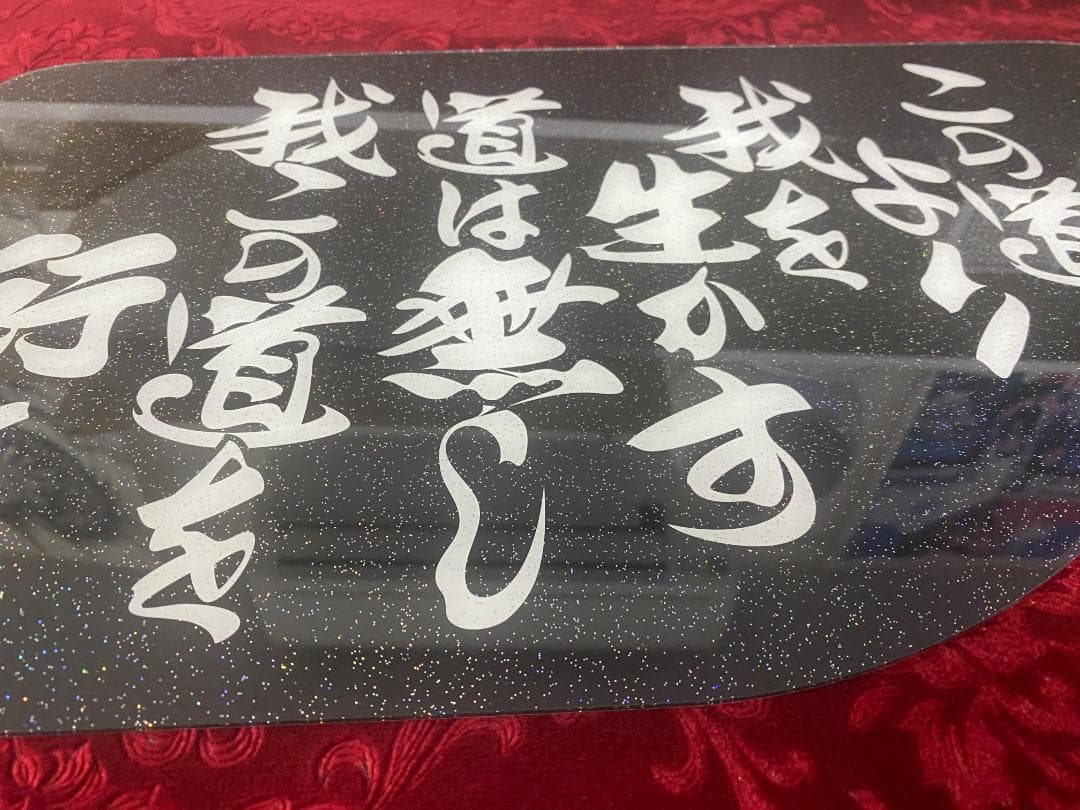 この道
より
我を
生かす
道は無し
我この道を
行